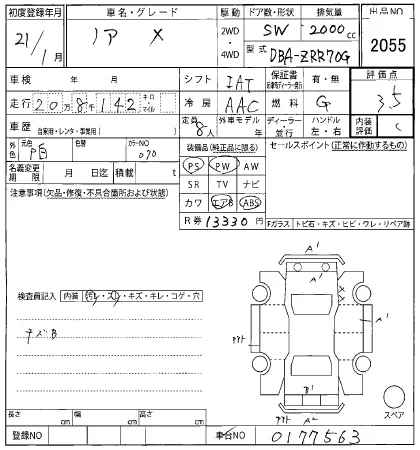 初度登録年月 車名・グレード 駆動 ドア数・形状 排気量 出品NO
21/1月 ノア X 2WD 4WD SW 2000cc 2055
型式 DBA-ZRR70G
車検 年 月 シフト IAT 保証書 有・無 評価点
走行 20万8千142 キロ マイル 冷房 AAC 燃料 G 3.5
車歴 自家用・レンタ・事業用( ) 定員 8人 外車モデル 年 ディーラー・並行 ハンドル 左・右 内装評価 C
外色 元色 色替 カラーNO 070 装備品(純正品に限る) セールスポイント(正常に作動するもの)
名義変更期限 月 日迄 積載 t PS PW AW
注意事項(欠品・修復・不具合箇所および状態) SR TV ナビ
カワ エアB ABS
R券 13330円 Fガラス トビ石・キズ・ヒビ・ワレ・リペア跡
A1
検査員記入 内装 汚レ・スレ・キズ・キレ・コゲ・穴
X
X
A1
B1
A1
スペア
長さ cm 幅 cm 高さ cm
登録NO 車台NO 0177563